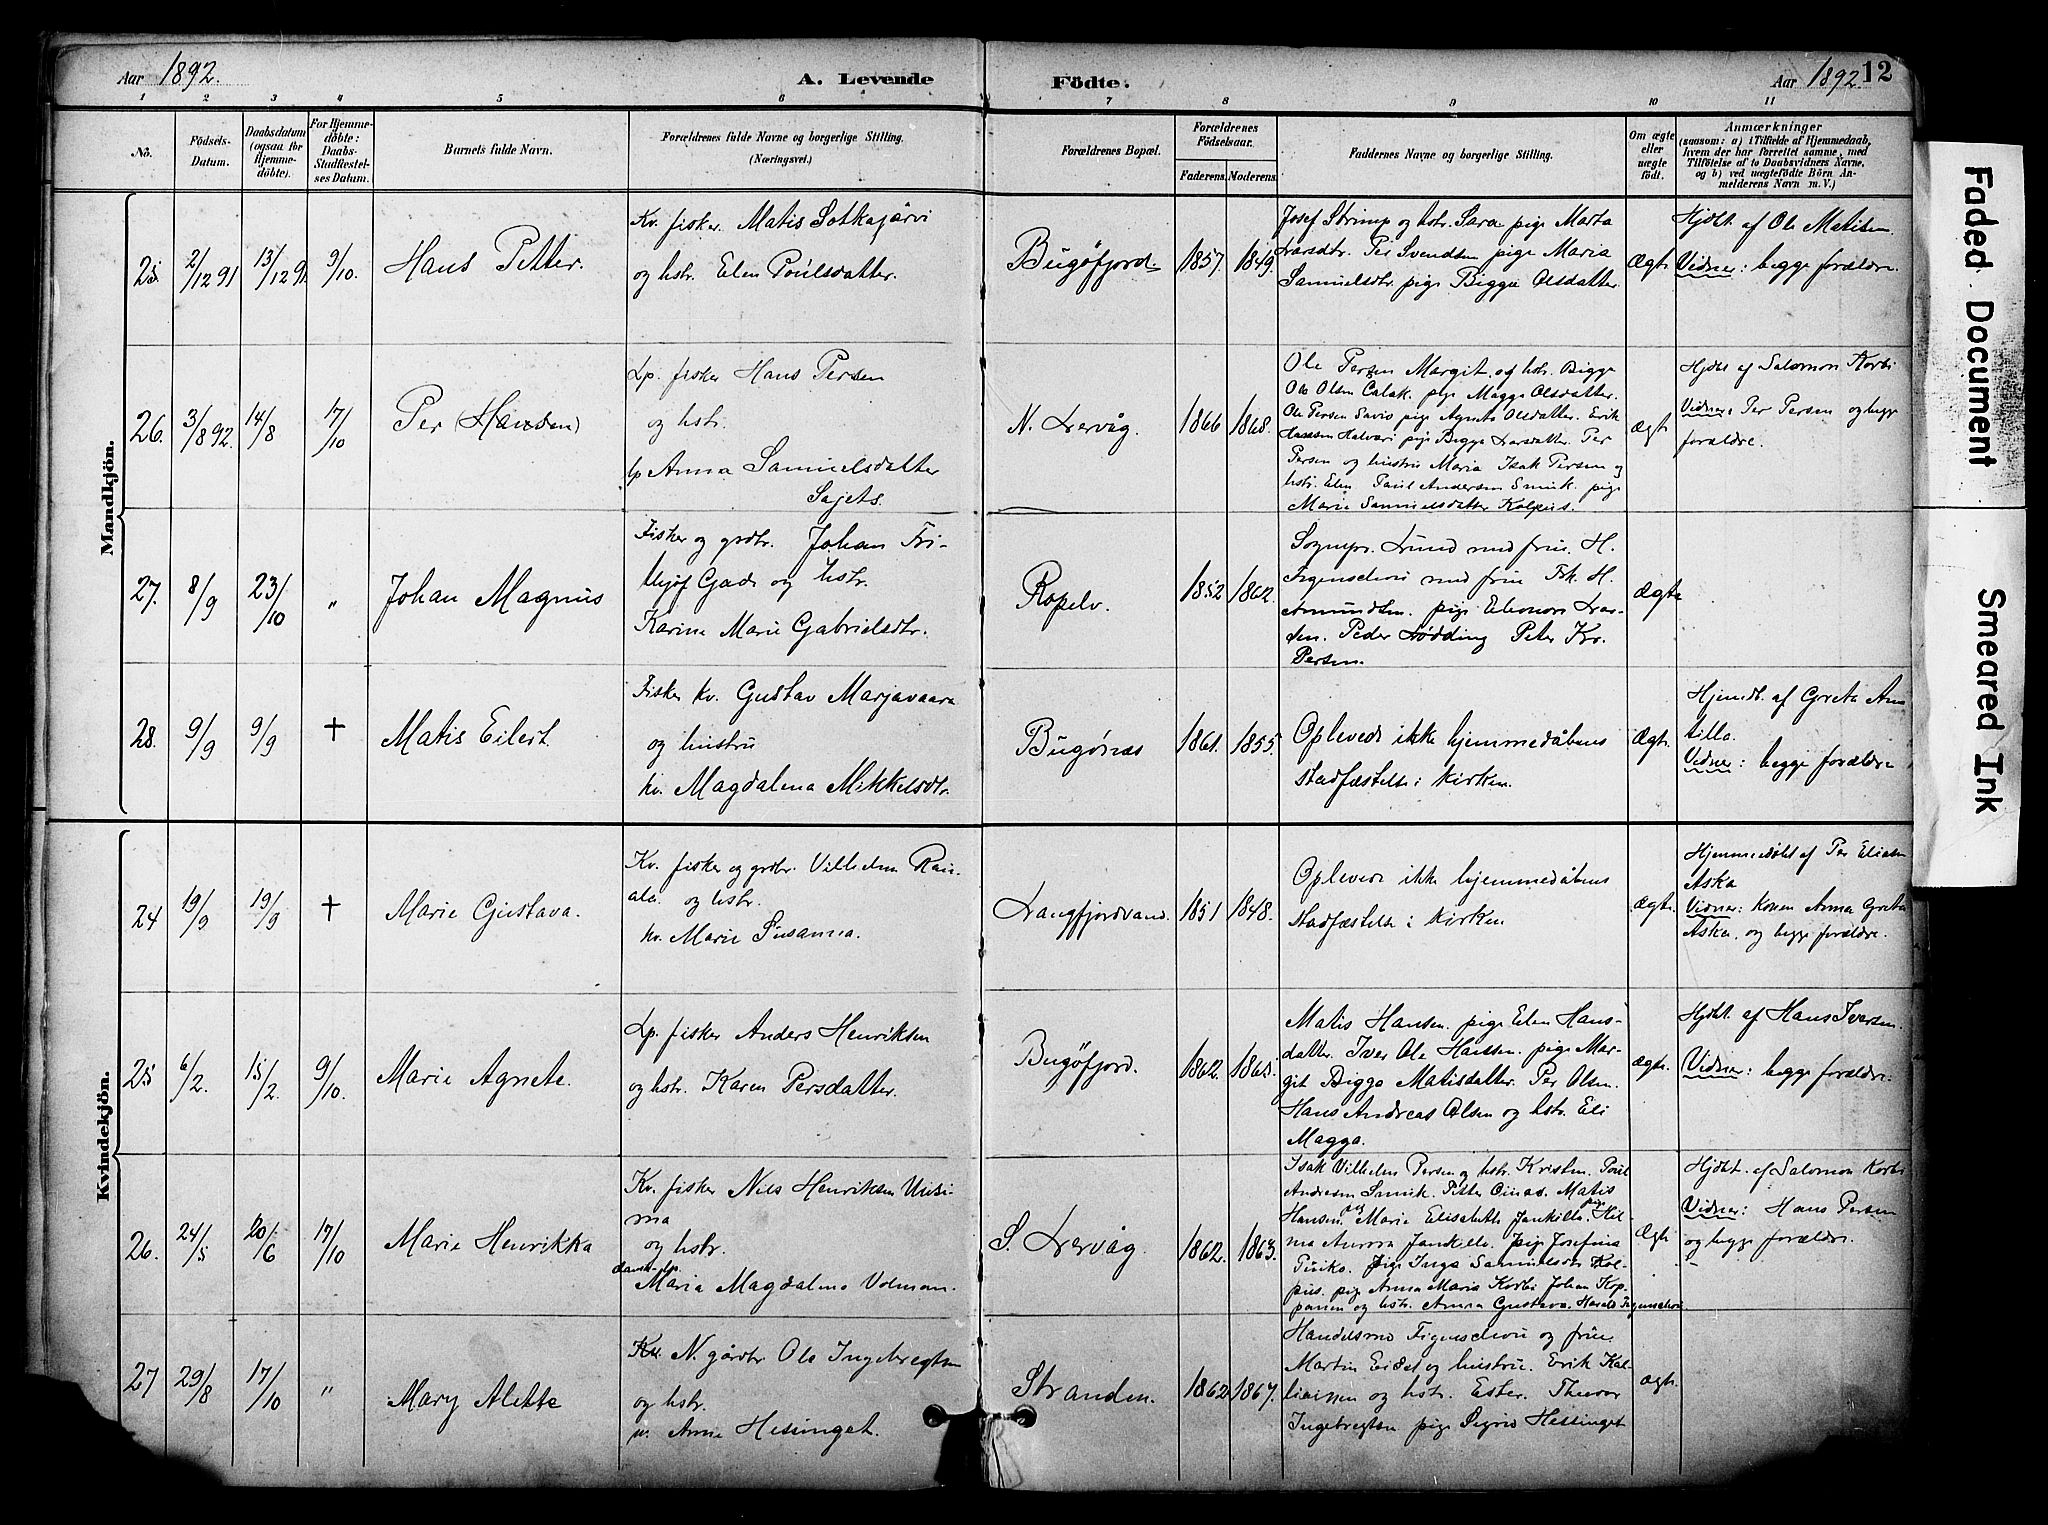 Aar 1892.
A. Levende
Födte.
Aar 1892. 12
1 2 3 4 5 6 7 8 9 10 11
No.
Födsels-
Datum.
Daabsdatum
(ogsaa for
Hjemme-
döbte).
For Hjemme-
döbte:
Daabs-
Stadfæstel-
ses Datum.
Barnets fulde Navn.
Forældrenes fulde Navne og borgerlige Stilling.
(Næringsvei.)
Forældrenes Bopæl.
Forældrenes
Födselsaar.
Faderens. Moderens.
Faddernes Navne og borgerlige Stilling.
Om ægte
eller
uægte
födt.
Anmærkninger
(saasom: a) i Tilfælde af Hjemmedaab,
hvem der har forrettet samme, med
Tilföielse af to Daabsvidners Navne,
og b) ved uægtefödte Börn An-
melderens Navn m. V.)
Mandkjön.
25. 2/12 91 13/12 91 9/10. Hans Petter.
Kv. fisker. Matis Sotkajärvi
og hstr. Elen Poulsdatter.
Bugøfjord. 1857. 1849.
Josef Strimp og hstr. Sara pige Marta
Larsdtr. Per Svendsen pige Maria
Samuelsdtr. pige Bigga Olsdatter.
Ægte
Hjdbt. af Ole Matisen.
Vidner: begge forældre.
26. 3/8 92. 14/8 17/10 Per (Hansen)
Lp. fisker Hans Persen
og hstr.
lp Anna Samuelsdatter
Sajets.
N. Leervåg. 1866 1868.
Ole Persen Margit og hstr. Bigga
Ole Olsen Calak. pige Magga Olsdatter.
Ole Persen Savis pige Agnete Olsdatter. Erik
Hansen Halvari pige Bigga Larsdatter. Per
Persen og hustru Maria Isak Persen og
hstr. Elen Paul Andersen Smuk. pige
Marie Samuelsdatter Kolpus.
ægte
Hjdbt af Salomon Korbi
Vidner: Per Persen og begge
forældre.
27. 8/9 23/10 " Johan Magnus
Fisker og grdbr. Johan Fri-
thjof Gade og hstr.
Karine Marie Gabrielsdtr.
Ropelv. 1852 1862.
Sognepr. Lund med frue. H.
Figenschou med frue Frk. H.
Amundsen. pige Eleonore Lar-
sen. Peder Lødding Peter Kr.
Persen.
Ægte
28. 9/9 9/9 † Matis Eilert.
Fisker kv. Gustav Marjavaara
og hustru
kv. Magdalena Mikkelsdtr.
Bugønæs 1861. 1855.
Oplevede ikke hjemmedåbens
stadfæstelse i kirken.
Ægte.
Hjemdt. af Greta An
tilla.
Vidner: begge forældre
Kvindekjön.
24 19/9 19/9 † Marie Gustava.
Kv. fisker og grdbr. Vilhelm Rai-
ala. og hstr.
kv. Marie Susanna.
Langfjordvand. 1851 1848.
Oplevede ikke hjemmedåbens
stadfæstelse i kirken
ægte.
Hjemmedøbt af Per Eliasen
Aska
Vidner: konen Anna Greta
Aska. og begge forældre.
25 6/2. 15/2. 9/10. Marie Agnete.
Lp. fisker Anders Henriksen
og hstr. Karen Persdatter.
Bugøfjord. 1862. 1865.
Matis Hansen. pige Elen Hans-
datter. Iver Ole Hansen. pige Mar-
git Bigga Matisdatter. Per Olsen.
Hans Andreas Olsen og hstr. Eli
Magga.
ægte.
Hjdbt. af Hans Iversen.
Vidner: begge forældre.
26. 24/5 20/6 17/10 Marie Henrikka
Kv. fisker Nils Henriksen Uusi-
ma
og hstr.
Maria Magdalena Volmann.
S. Leervåg. 1862. 1863.
Isak Vilhelm Persen og hstr. Kristen. Poul
Andresen Smuk. Petter Oinas. Matis
Hansen. pig Marie Elisabeth Jankilla. pige Hil-
ma Aurora Jankilla. pige Josefina
Puiko. Pige Inga Samuelsdtr Kol-
pus. pige Anna Maria Korbi Johan Kop-
panen og hstr. Anna Gustava. Harald Figenschou
Ægte
Hjdbt. af Salomon Korbi
Vidner: Hans Persen
og begge forældre.
27 29/8 17/10 " Mary Alette
N. gårdbr Ole Ingebregtsen
og hstr.
n. Anne Hesinget.
Stranden. 1862 1867.
Handelsmd Figenschou og frue
Martin Eidet og hustru. Erik Kal-
liainen og hstr. Ester. Theodor
Ingebregtsen pige Sigrid Hessinget
ægte.
Faded Document
Smeared Ink